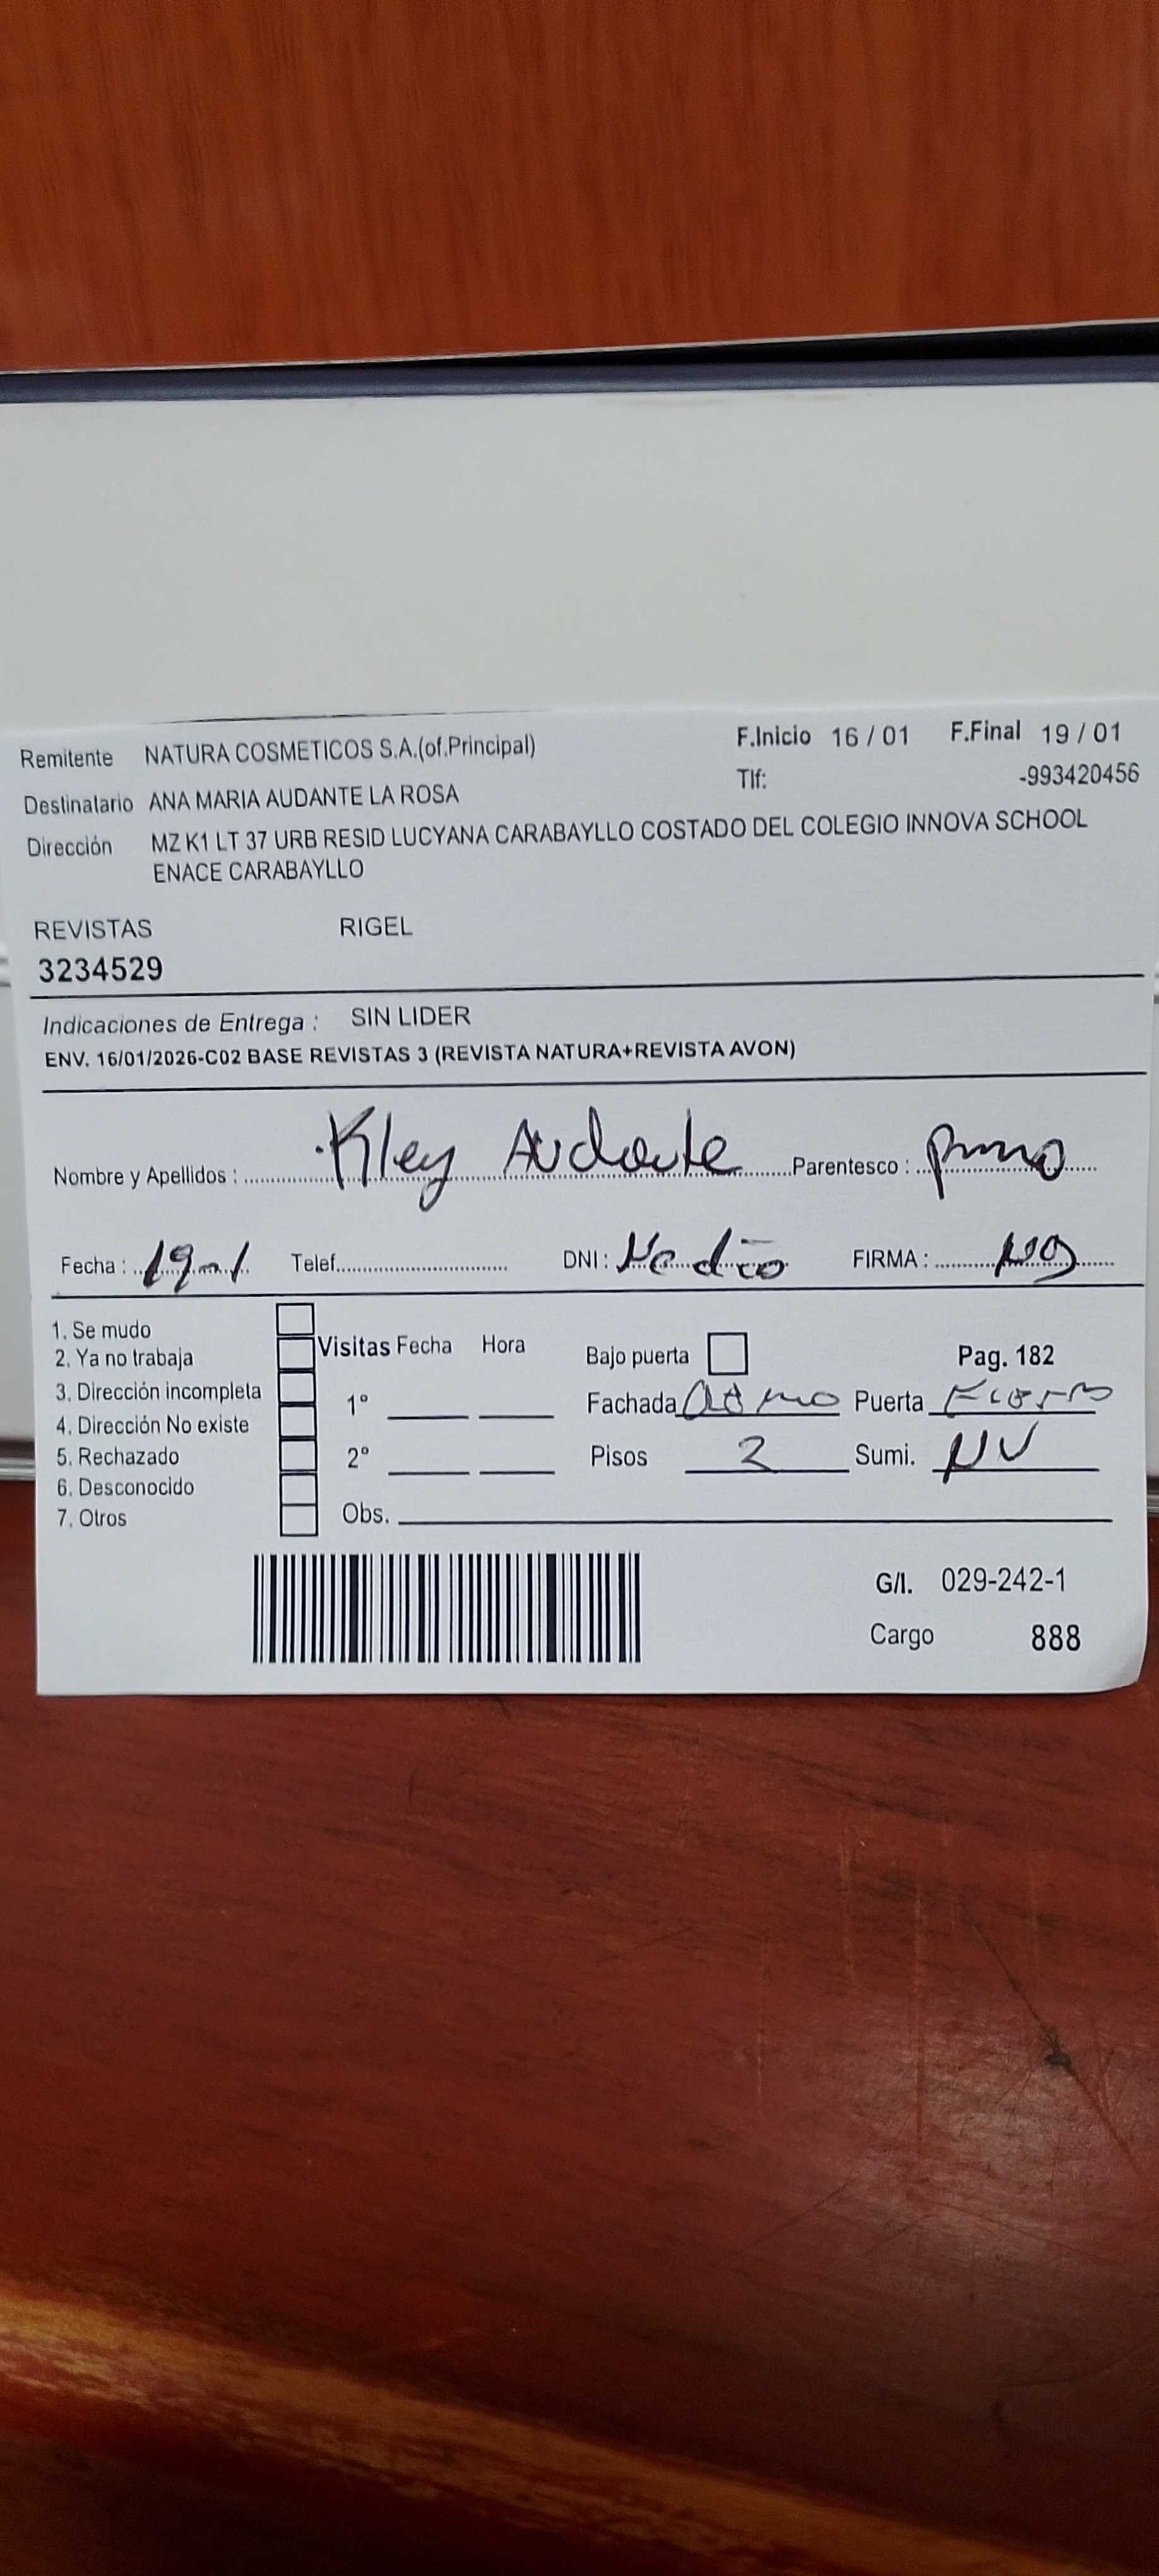 Remitente NATURA COSMETICOS S.A.(of.Principal) F.Inicio 16 / 01 F.Final 19 / 01
Tlf: -993420456
Destinatario ANA MARIA AUDANTE LA ROSA
Dirección MZ K1 LT 37 URB RESID LUCYANA CARABAYLLO COSTADO DEL COLEGIO INNOVA SCHOOL
ENACE CARABAYLLO
REVISTAS RIGEL
3234529
Indicaciones de Entrega : SIN LIDER
ENV. 16/01/2026-C02 BASE REVISTAS 3 (REVISTA NATURA+REVISTA AVON)
Nombre y Apellidos : Kley Audante Parentesco : primo
Fecha : Telef. DNI: No dio FIRMA :
1. Se mudo
2. Ya no trabaja
3. Dirección incompleta
4. Dirección No existe
5. Rechazado
6. Desconocido
7. Otros
Visitas Fecha Hora
1°
2°
Obs.
Bajo puerta Pag. 182
Fachada Puerta Fierro
Pisos 2 Sumi. NV
G/I. 029-242-1
Cargo 888